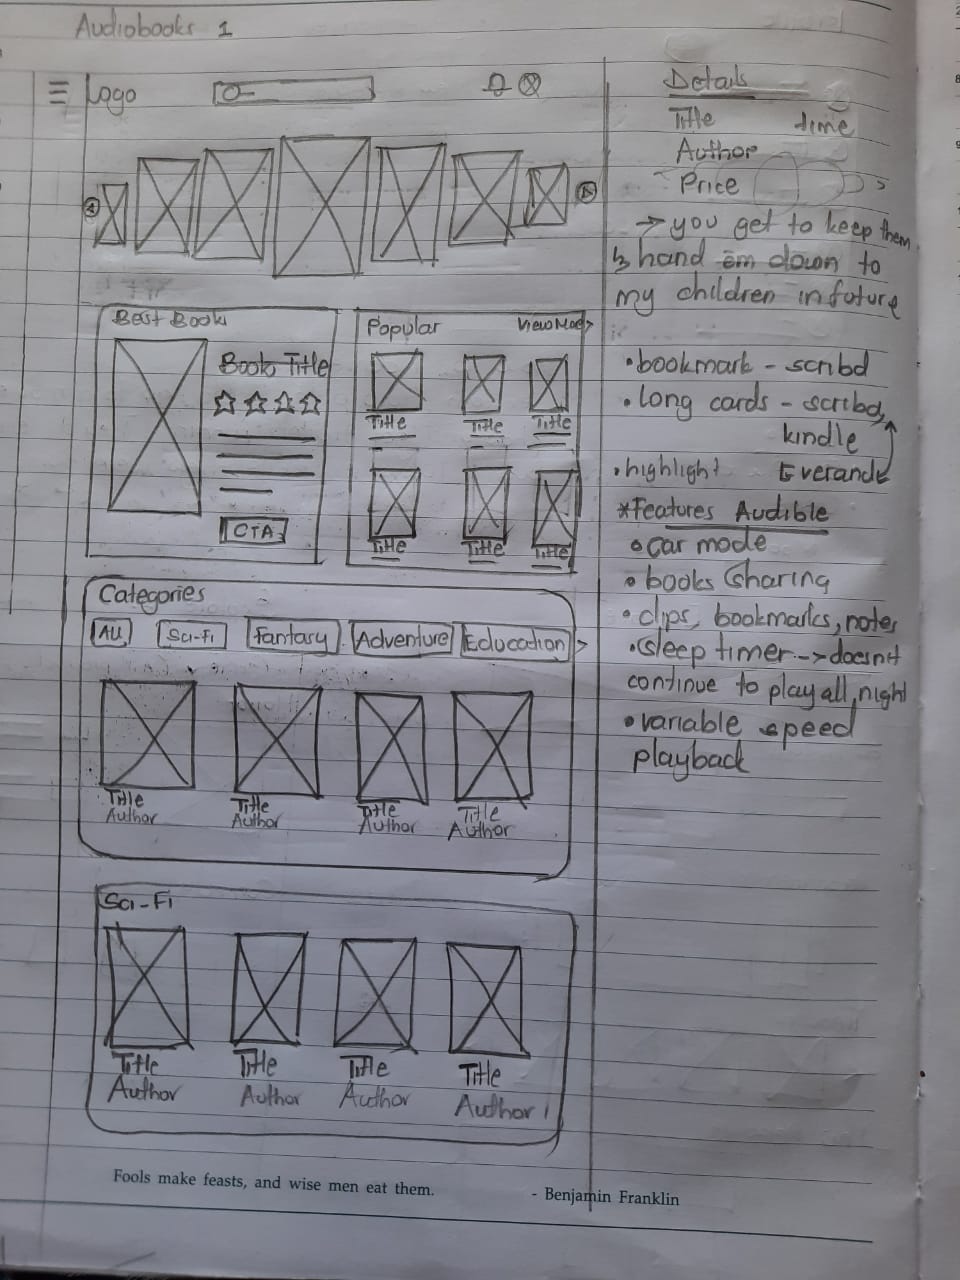 Audiobooks 1
Logo
Best Book
Book Title
CTA
Popular
View More>
Title
Title
Title
Title
Title
Title
Categories
All
Sci-Fi
Fantasy
Adventure
Education
>
Title
Author
Title
Author
Title
Author
Title
Author
Sci-Fi
Title
Author
Title
Author
Title
Author
Title
Author
Details
Title time
Author
Price
→ you get to keep them
↳ hand em down to
my children in future
• bookmark - scribd
• long cards - scribd,
kindle
• highlight Everand
*Features Audible
• car mode
• books sharing
• clips, bookmarks, notes
• sleep timer --> doesn't
continue to play all night
• variable speed
playback
Fools make feasts, and wise men eat them.
- Benjamin Franklin